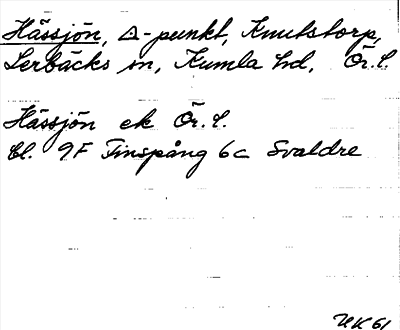 Hässjön, △-punkt, Knutstorp,
Lerbäcks sn, Kumla hd, Ör.l.
Hässjön ek Ör.l.
Bl. 9F Finspång 6c Svaldre
UK 61